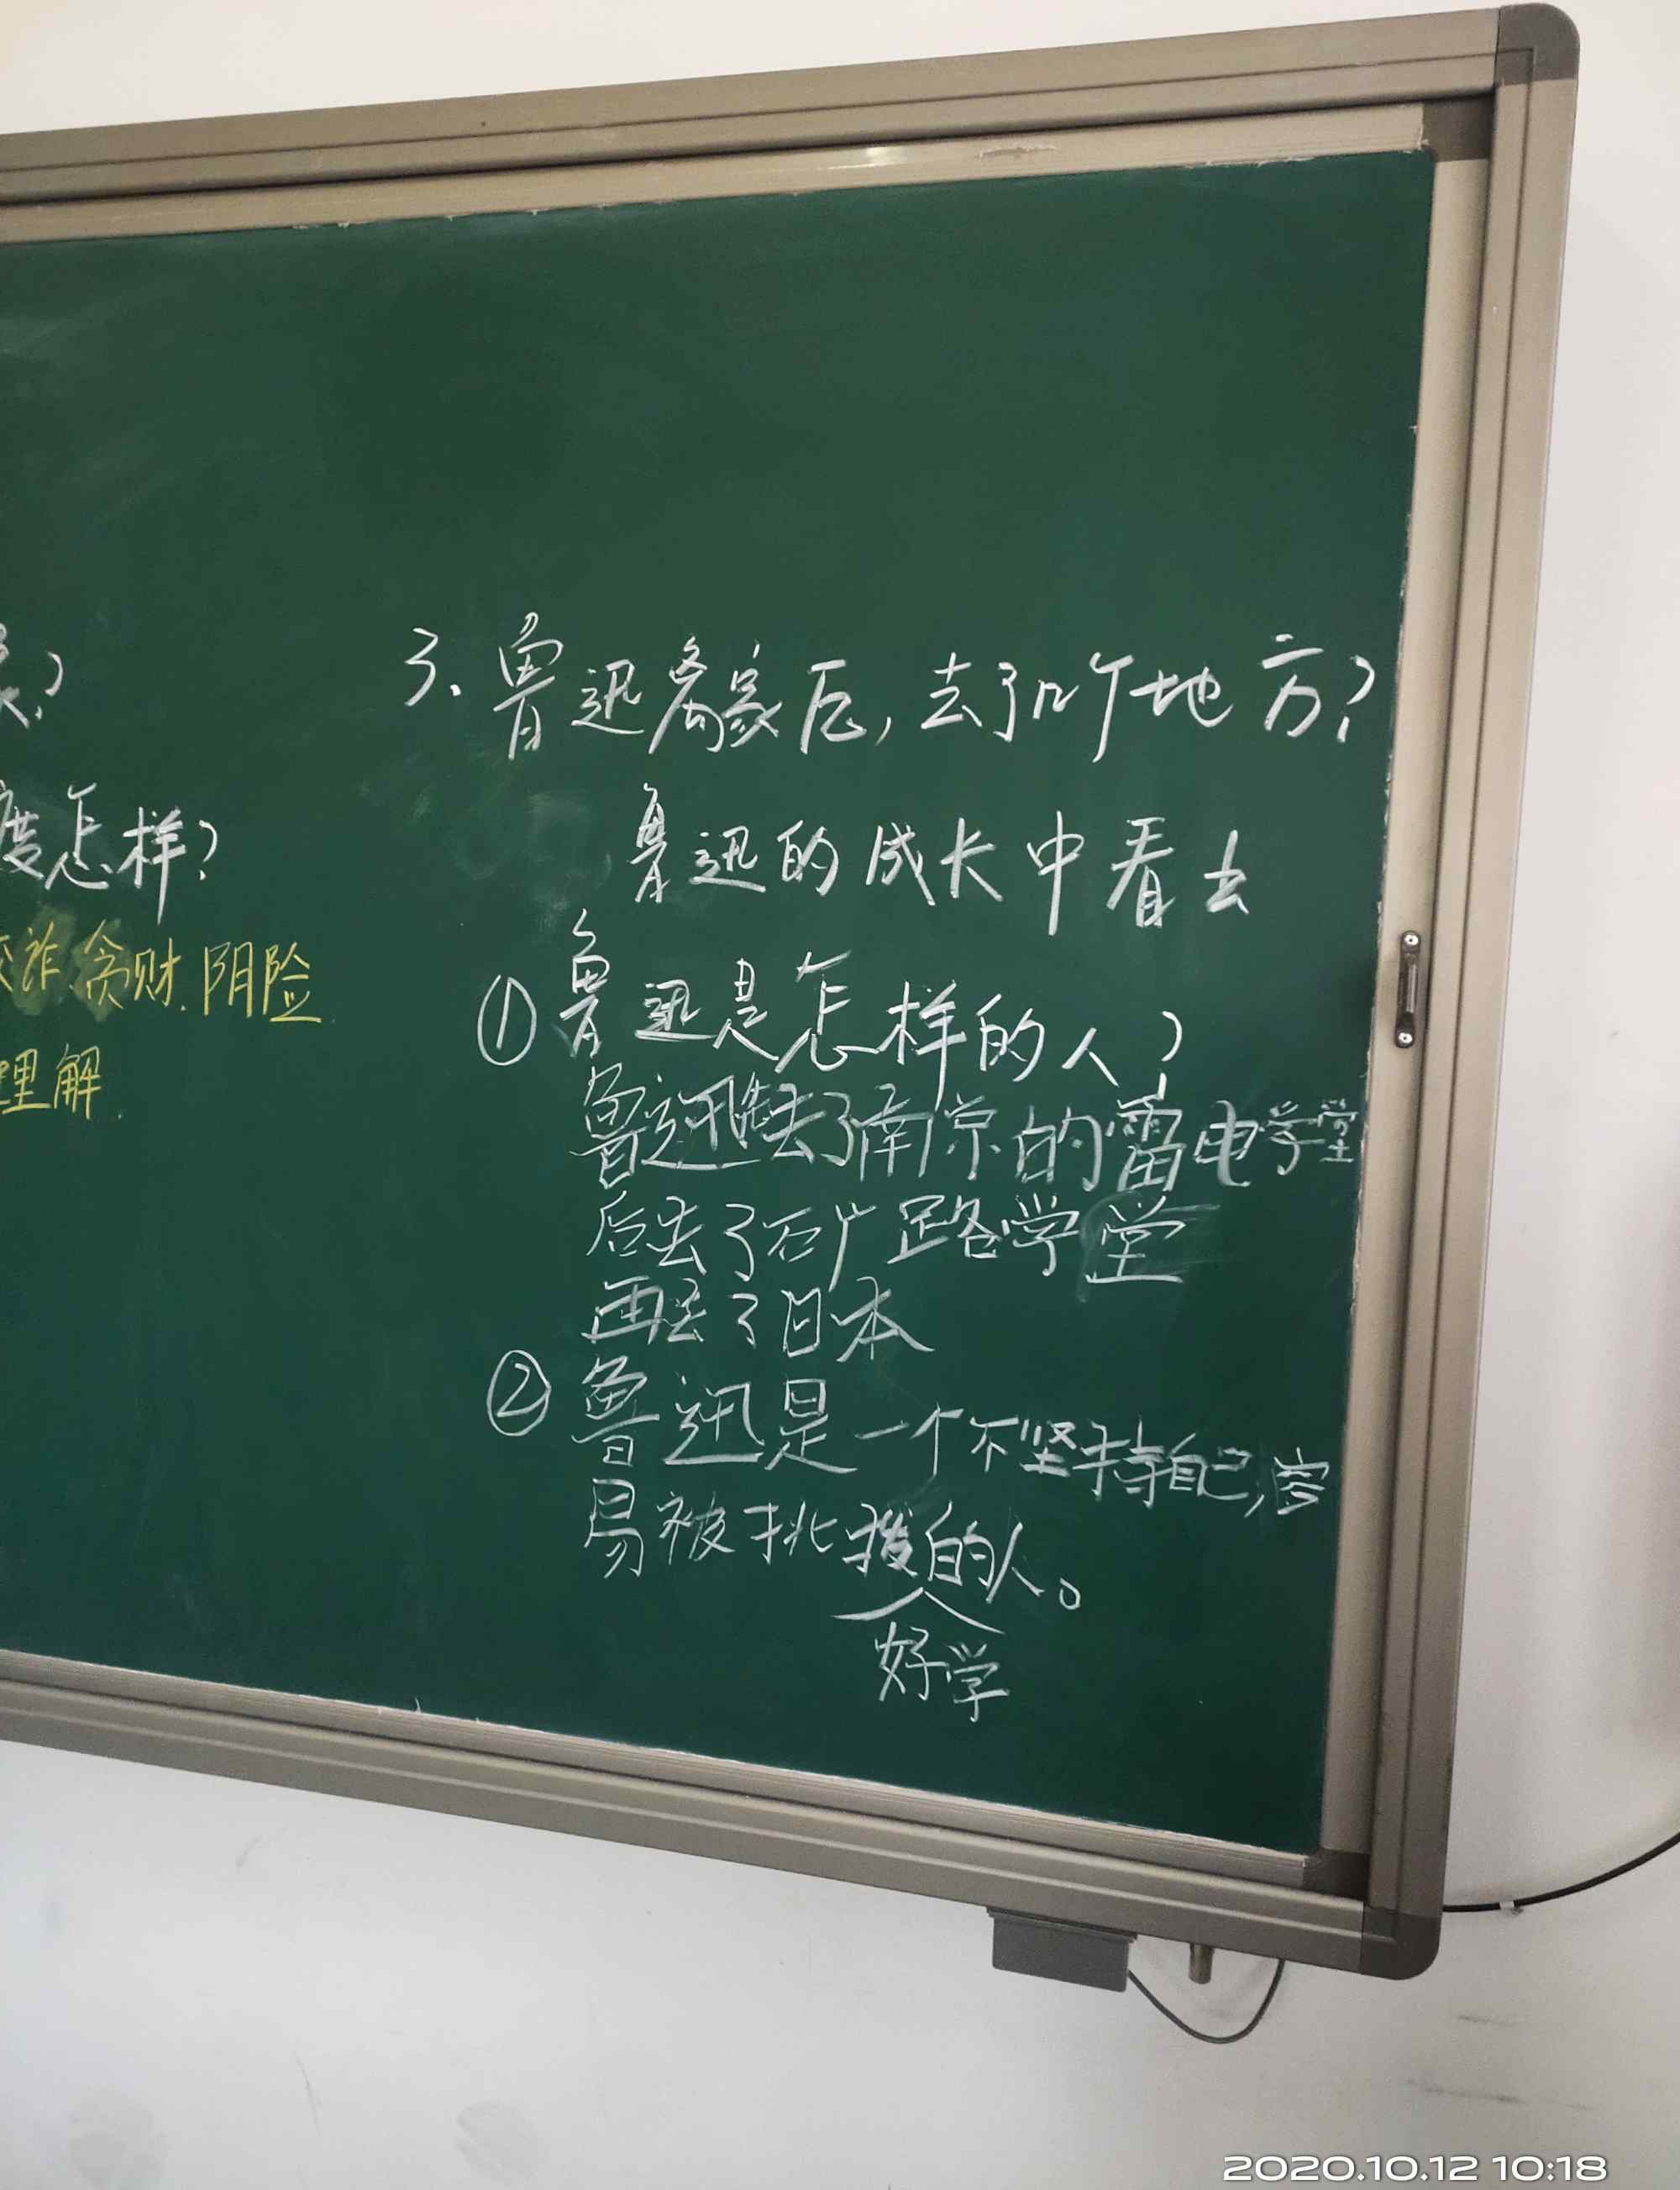 度怎样?
诈.贪财.阴险.
理解.
3.鲁迅离家后,去了几个地方?
鲁迅的成长中看去
①鲁迅是怎样的人?
鲁迅先去了南京的雷电学堂
后去了矿路学堂
再去了日本
②鲁迅是一个不坚持自己,容
易被挑拨的人。
好学
2020.10.12 10:18